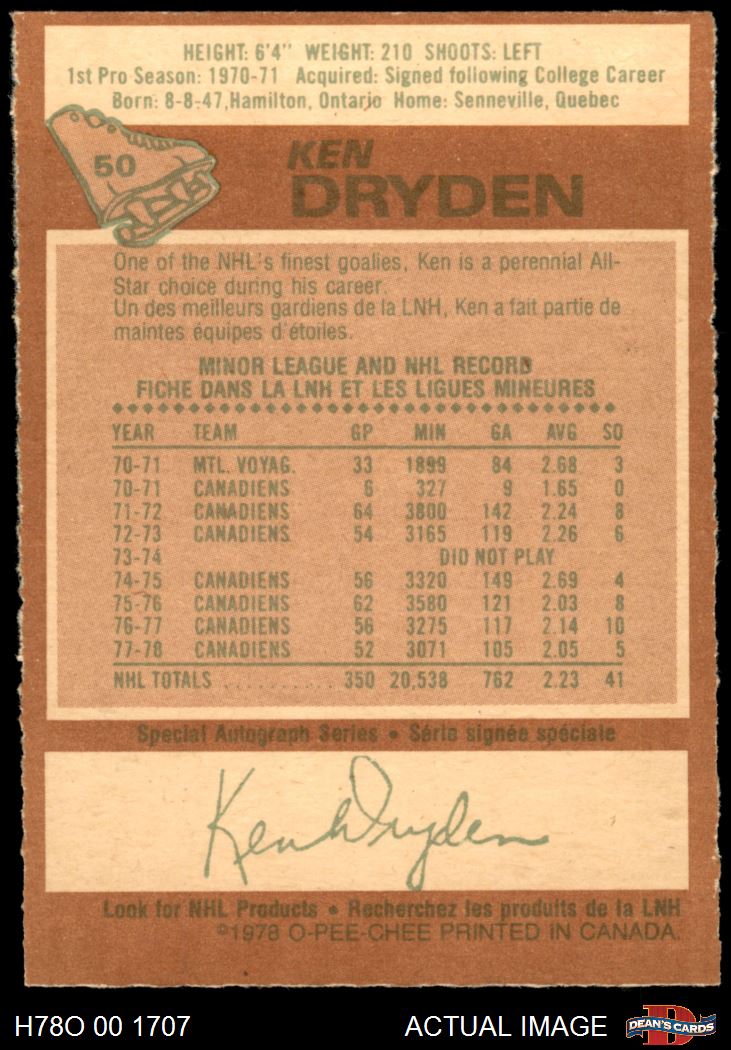 HEIGHT: 6'4" WEIGHT: 210 SHOOTS: LEFT
1st Pro Season: 1970-71 Acquired: Signed following College Career
Born: 8-8-47, Hamilton, Ontario Home: Senneville, Quebec
50
KEN
DRYDEN
One of the NHL's finest goalies, Ken is a perennial All-
Star choice during his career.
Un des meilleurs gardiens de la LNH, Ken a fait partie de
maintes équipes d'étoiles.
MINOR LEAGUE AND NHL RECORD
FICHE DANS LA LNH ET LES LIGUES MINEURES
YEAR TEAM GP MIN GA AVG SO
70-71 MTL. VOYAG. 33 1899 84 2.68 3
70-71 CANADIENS 6 327 9 1.65 0
71-72 CANADIENS 64 3800 142 2.24 8
72-73 CANADIENS 54 3165 119 2.26 6
73-74 DID NOT PLAY
74-75 CANADIENS 56 3320 149 2.69 4
75-76 CANADIENS 62 3580 121 2.03 8
76-77 CANADIENS 56 3275 117 2.14 10
77-78 CANADIENS 52 3071 105 2.05 5
NHL TOTALS .......... 350 20,538 762 2.23 41
Special Autograph Series • Série signée spéciale
Ken Dryden
Look for NHL Products • Recherchez les produits de la LNH
©1978 O-PEE-CHEE PRINTED IN CANADA.
H78O 00 1707 ACTUAL IMAGE DEAN'S CARDS